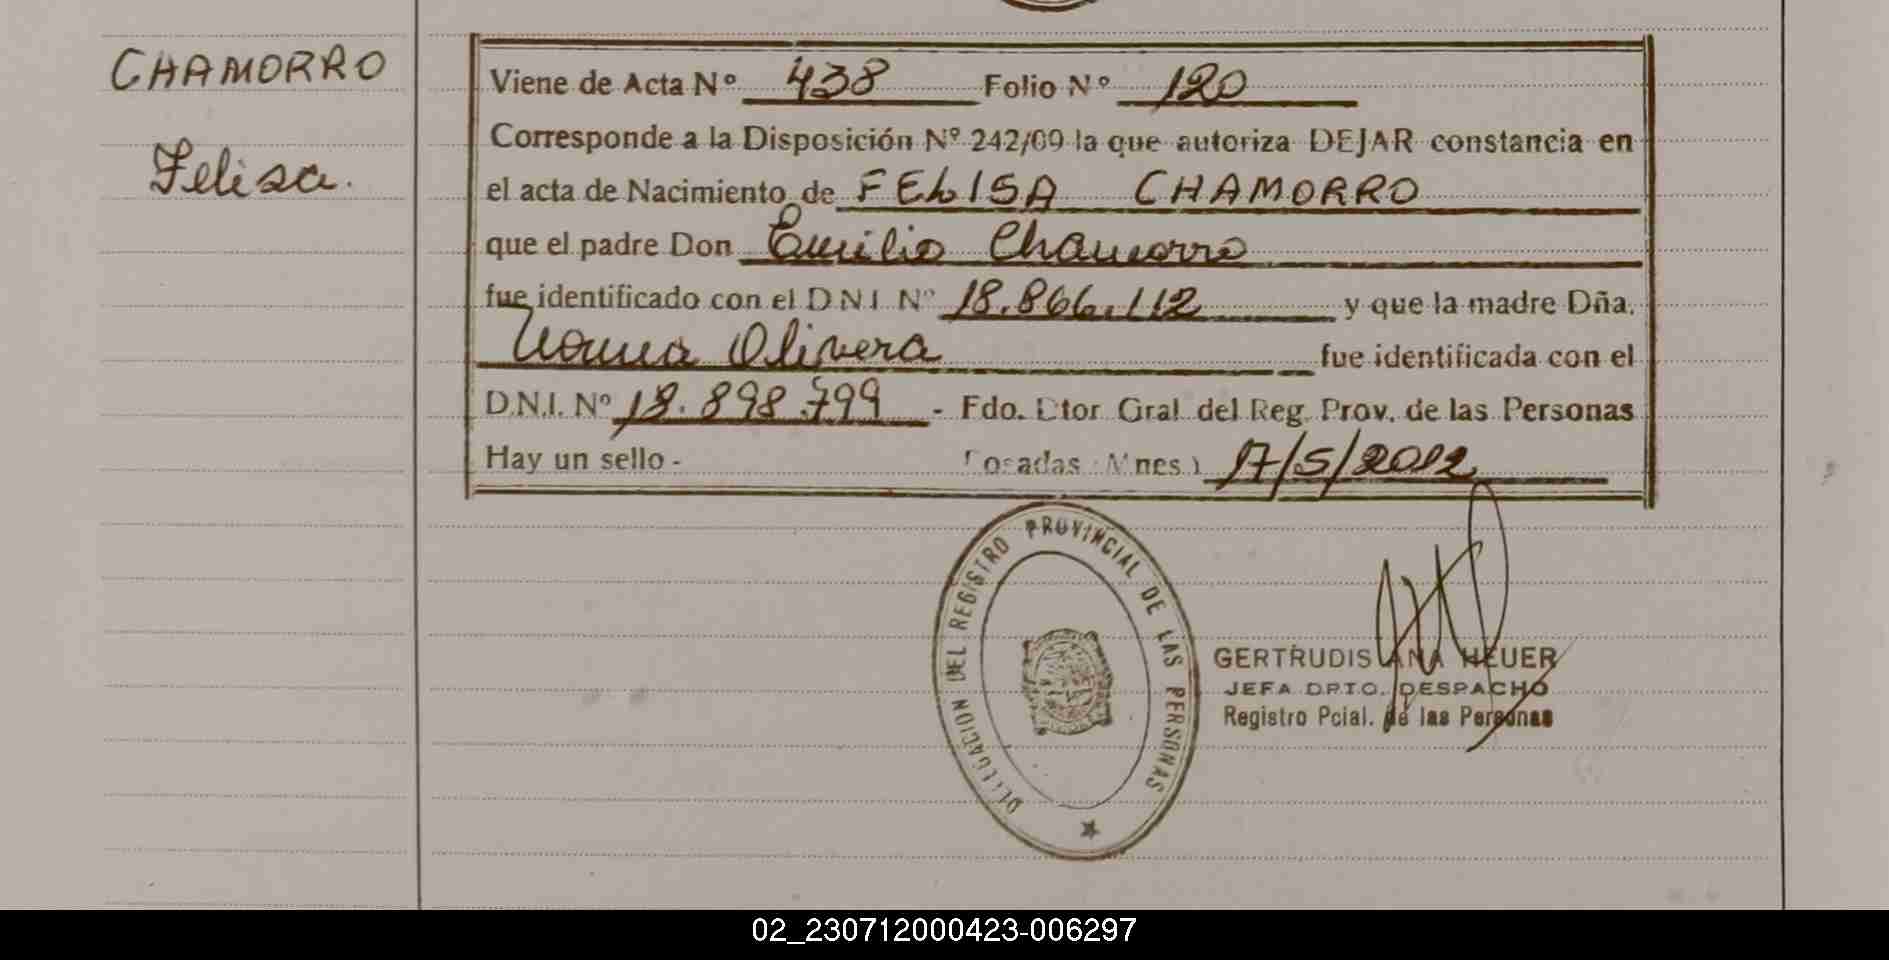 CHAMORRO
Felisa.
Viene de Acta Nº 438 Folio Nº 120
Corresponde a la Disposición Nº 242/09 la que autoriza DEJAR constancia en
el acta de Nacimiento de FELISA CHAMORRO
que el padre Don Emilio Chamorro
fue identificado con el D N I Nº 18.866.112 y que la madre Dña.
Norma Olivera fue identificada con el
D.N.I. Nº 18.898.799 - Fdo. Dtor Gral del Reg. Prov. de las Personas
Hay un sello - Posadas (Mnes) 17/5/2012
DELEGACION DEL REGISTRO PROVINCIAL DE LAS PERSONAS
GERTRUDIS ANA HEUER
JEFA DPTO. DESPACHO
Registro Pcial. de las Personas
02_230712000423-006297